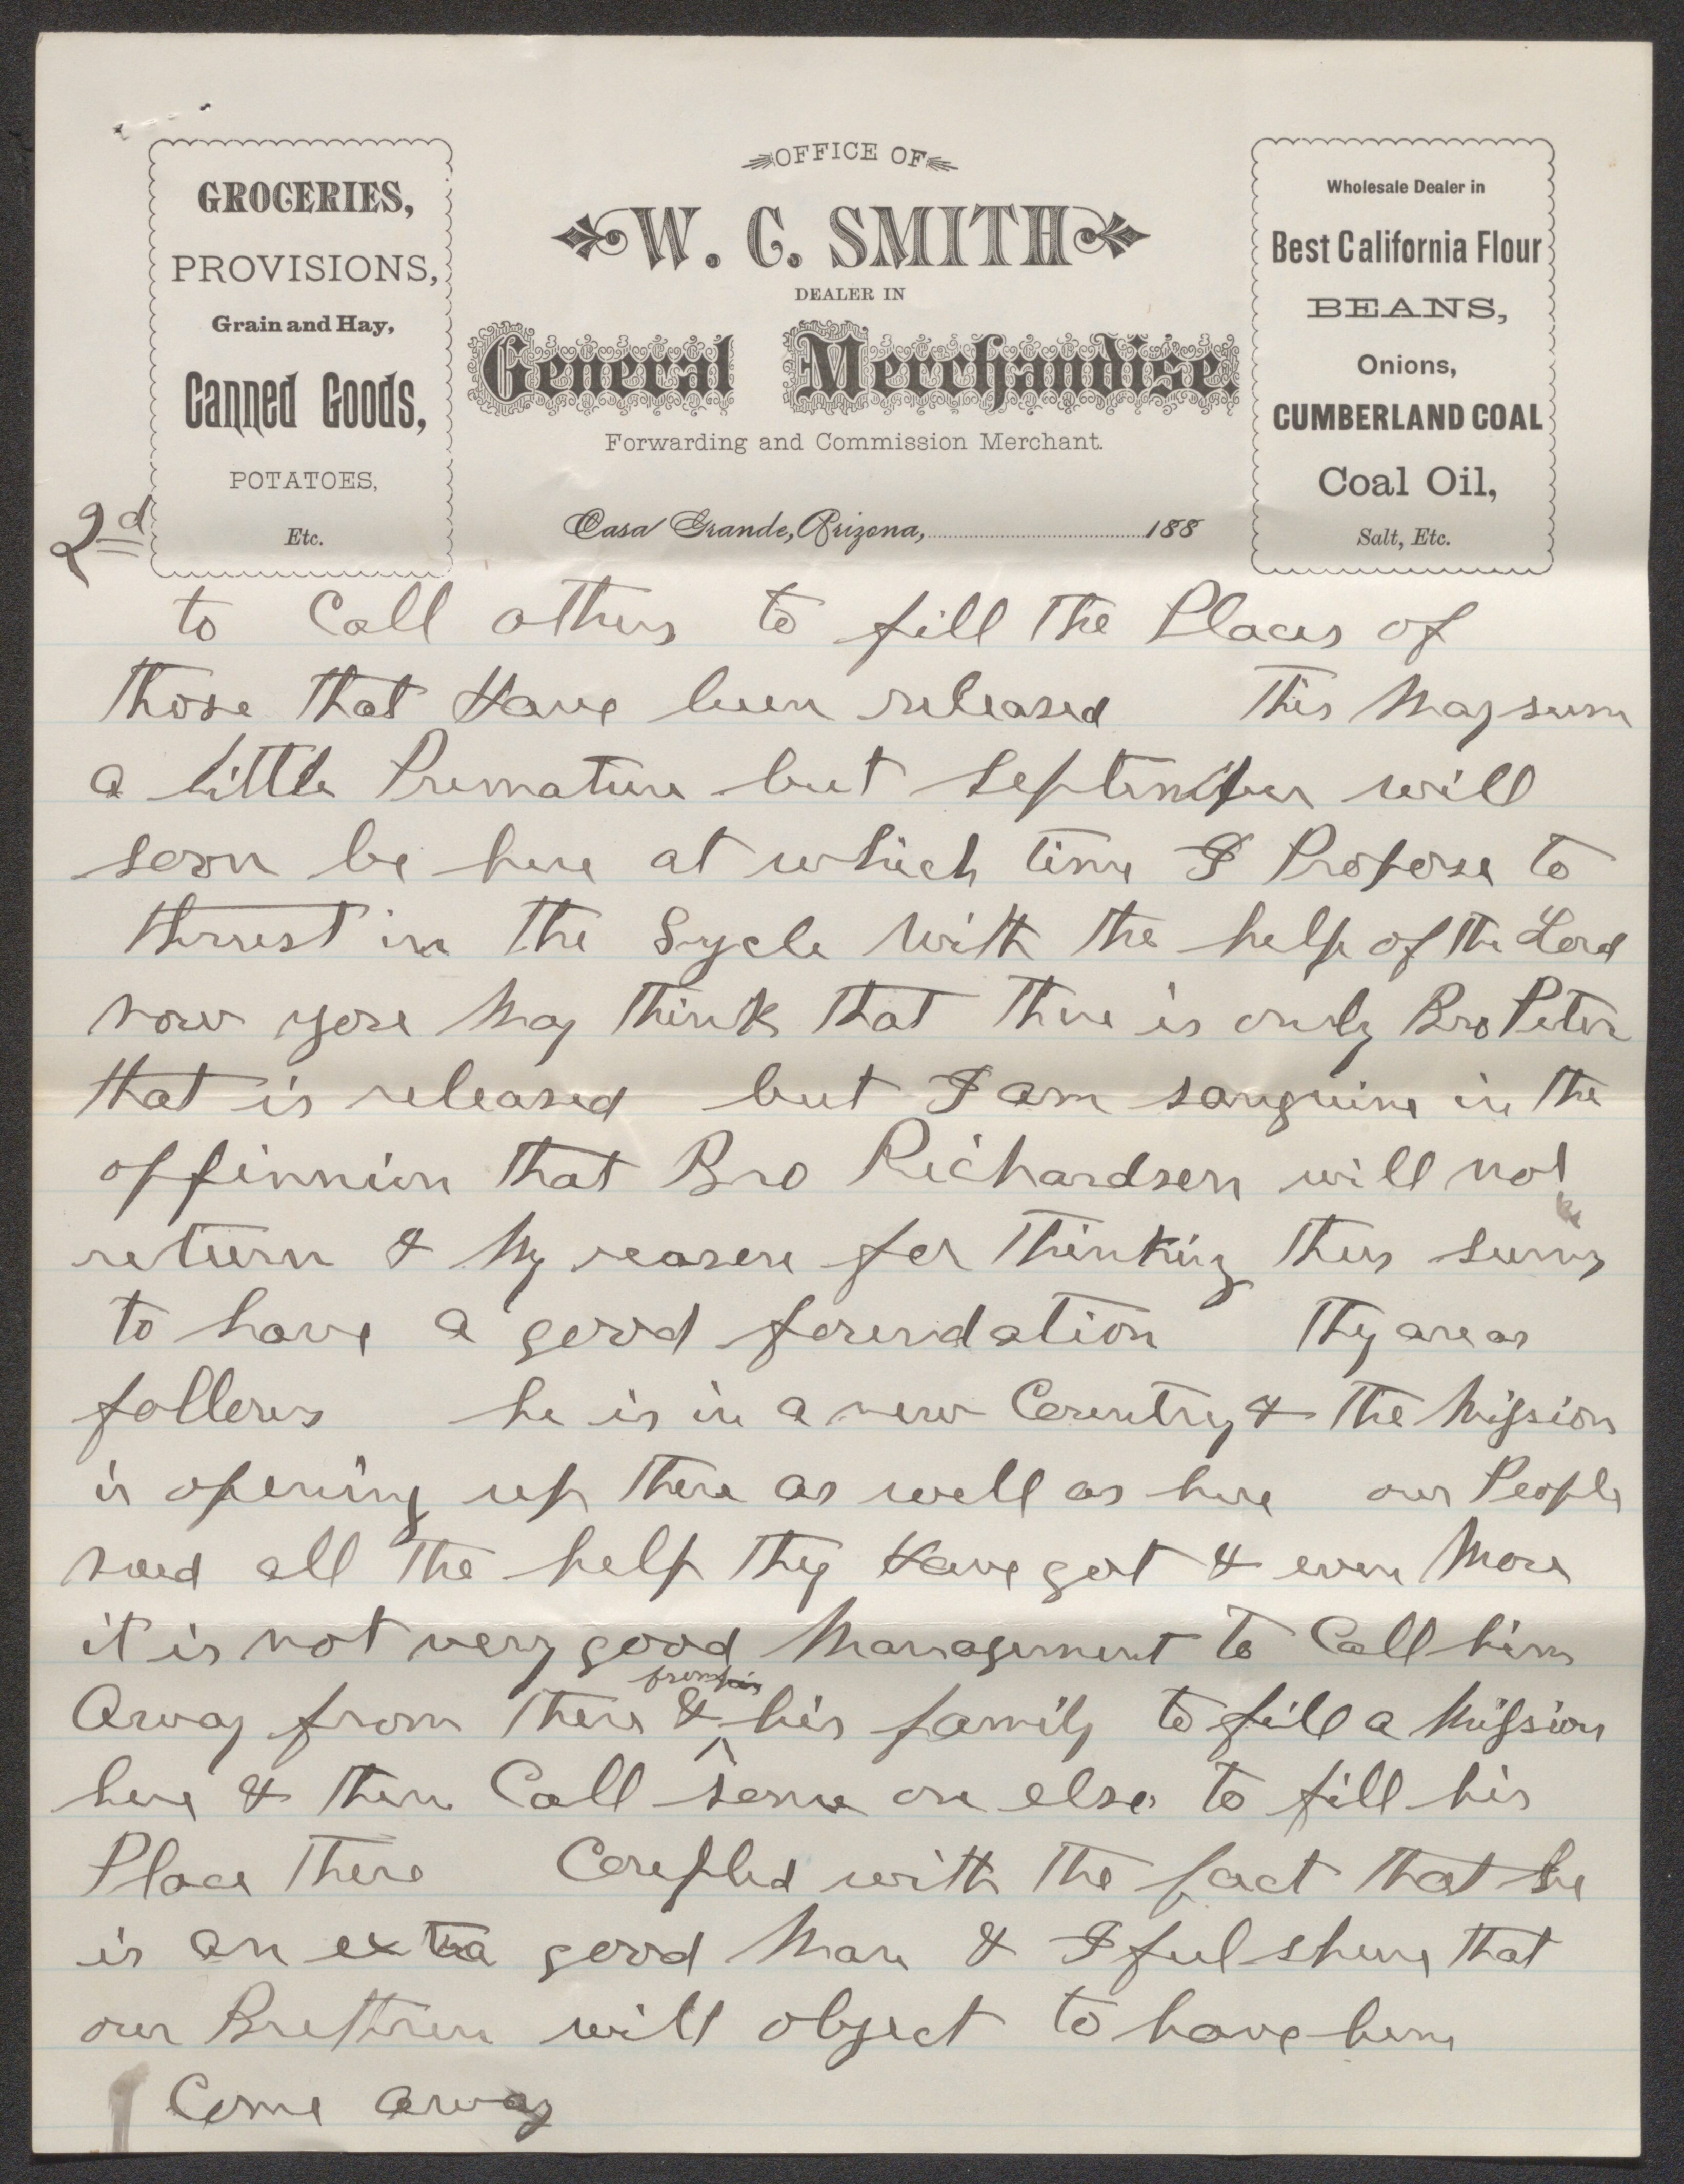 OFFICE OF
W. C. SMITH
DEALER IN
General Merchandise.
Forwarding and Commission Merchant.
Casa Grande, Arizona, 188
GROCERIES,
PROVISIONS,
Grain and Hay,
Canned Goods,
POTATOES,
Etc.
Wholesale Dealer in
Best California Flour
BEANS,
Onions,
CUMBERLAND COAL
Coal Oil,
Salt, Etc.
2d
to Call others to fill the Places of
those that Have been released This May seem
a little Premature but September will
soon be here at which time I Propose to
thrust in the Sycle With the help of the Lord
now you May think that there is only Bro Peter
that is released but I am sanguine in the
offinnion that Bro Richardson will not
return & My reason for thinking thus seems
to have a good foundation They are as
follows he is in a new Country & the Mission
is opening up there as well as here our People
need all the help they Have got & even More
it is not very good Management to Call him
Away from there & from his family to fill a Mission
here & then Call some one else to fill his
Place there Coupled with the fact that he
is an extra good Man & I feel shure that
our Brethren will object to have him
Come away